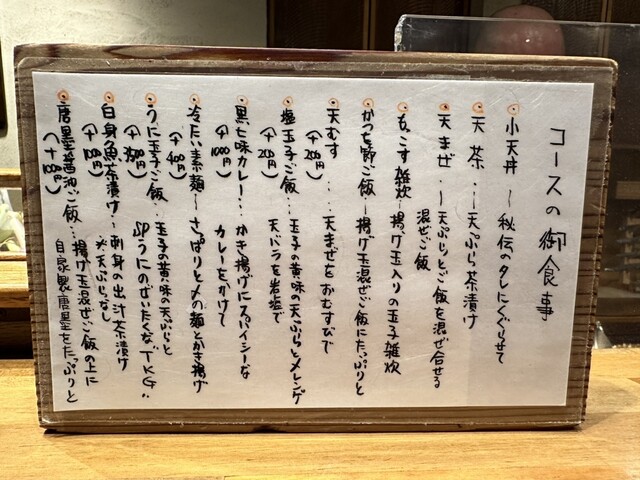 コースの御食事
小天丼 〜 秘伝のタレにくぐらせて
天茶 … 天ぷら茶漬け
天まぜ … 天ぷらとご飯を混ぜ合せる
混ぜご飯
もっこす雑炊 … 揚げ玉入りの玉子雑炊
かつを節ご飯 … 揚げ玉混ぜご飯にたっぷりと
天むす … 天まぜをおむすびで
(+200円)
塩玉子ご飯 … 玉子の黄味の天ぷらとメレンゲ
(+200円) 天バラを岩塩で
黒七味カレー … かき揚げにスパイシーな
(+1000円) カレーをかけて
冷たい素麺 〜 さっぱりと〆の麺とかき揚げ
(+400円)
うに玉子ご飯 … 玉子の黄味の天ぷらと
SPうにのぜいたくな"TKG"
白身魚茶漬け … 刺身の出汁茶漬け
(+100円) ※天ぷらなし
唐墨醤油ご飯 … 揚げ玉混ぜご飯の上に
自家製唐墨をたっぷりと